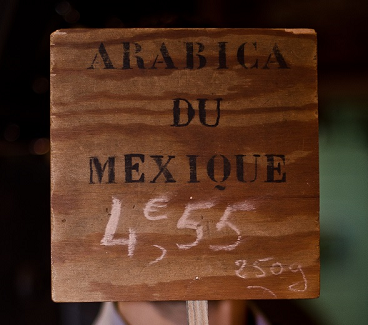 ARABICA
DU
MEXIQUE
4€,55
250g